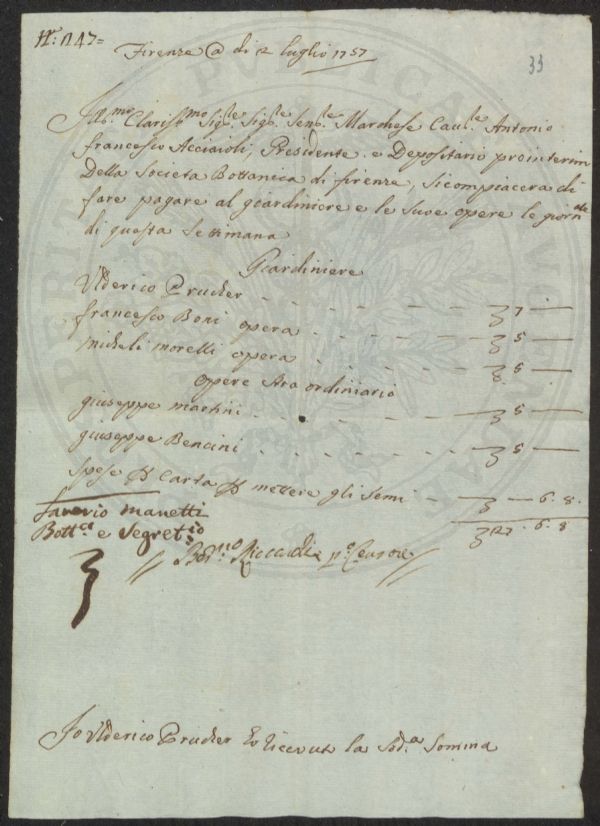 N.° 1247=
Firenze @ di 2 luglio 1757
33
Ill.mo Clariss.mo Sig.re Sig.re Sen.re Marchese Cau.re Antonio
Francesco Acciaioli, Presidente e Depositario prointerim
Della Societa Bottanica di firenze, si compiacera di
fare pagare al giardiniere e le suve opere le giorn.te
di questa Settimana
Giardiniere
Ulderico Prucker - - - - - - 7 —
francesco Boni opera - - - - - 5 —
micheli morelli opera - - - - - 5 —
opere straordinario
giuseppe martini - - - - - 5 —
giuseppe Bencini - - - - - 5 —
Spese p Carta p mettere gli Semi - - — 6. 8.
Saverio Manetti
27. 6. 8
Bott.co e Segret.io
Riccardi p.o Censore
Io Ulderico Prucker ho riceuuto la Sod.a Somma